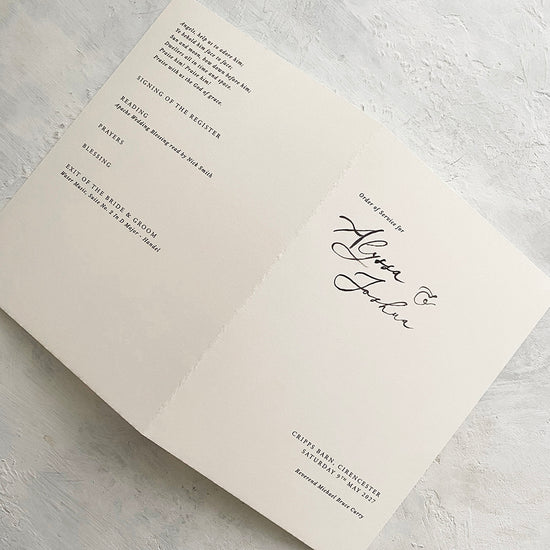 Angels, help us to adore him;
Ye behold him face to face;
Sun and moon, bow down before him;
Dwellers all in time and space.
Praise him! Praise him!
Praise with us the God of grace.
SIGNING OF THE REGISTER
READING
Apache Wedding Blessing read by Nick Smith
PRAYERS
BLESSING
EXIT OF THE BRIDE & GROOM
Water Music, Suite No. 2 In D Major - Handel
Order of Service for
Alyssa &
Joshua
CRIPPS BARN, CIRENCESTER
SATURDAY 9TH MAY 2027
Reverend Michael Bruce Curry